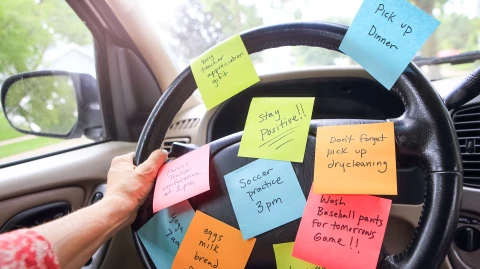 Pick up
Dinner
Buy
teacher
appreciation
gift
Stay
Positive!!
Don't Forget
pick up
drycleaning
Parent
Teacher
conference
at 1 pm
Soccer
practice
3pm
Wash
Baseball pants
for tomorrows
Game!!
Yoga
7am
eggs
milk
bread